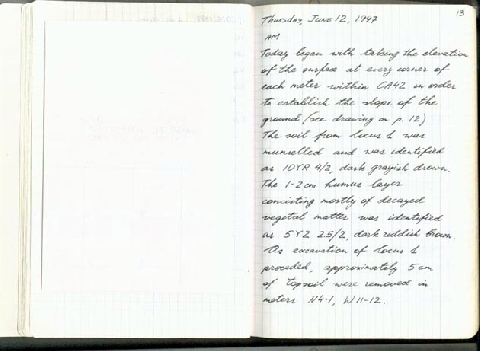 13
Thursday, June 12, 1997
AM
Today began with taking the elevation
of the surface at every corner of
each meter within OA42 in order
to establish the slope of the
ground (see drawing on p. 12)
The soil from locus 1 was
munselled and was identified
as 10YR 4/2, dark grayish brown.
The 1-2 cm humus layer
consisting mostly of decayed
vegetal matter was identified
as 5YR 2.5/2, dark reddish brown.
As excavation of locus 1
proceeded, approximately 5 cm
of topsoil were removed in
meters N4-1, W11-12.